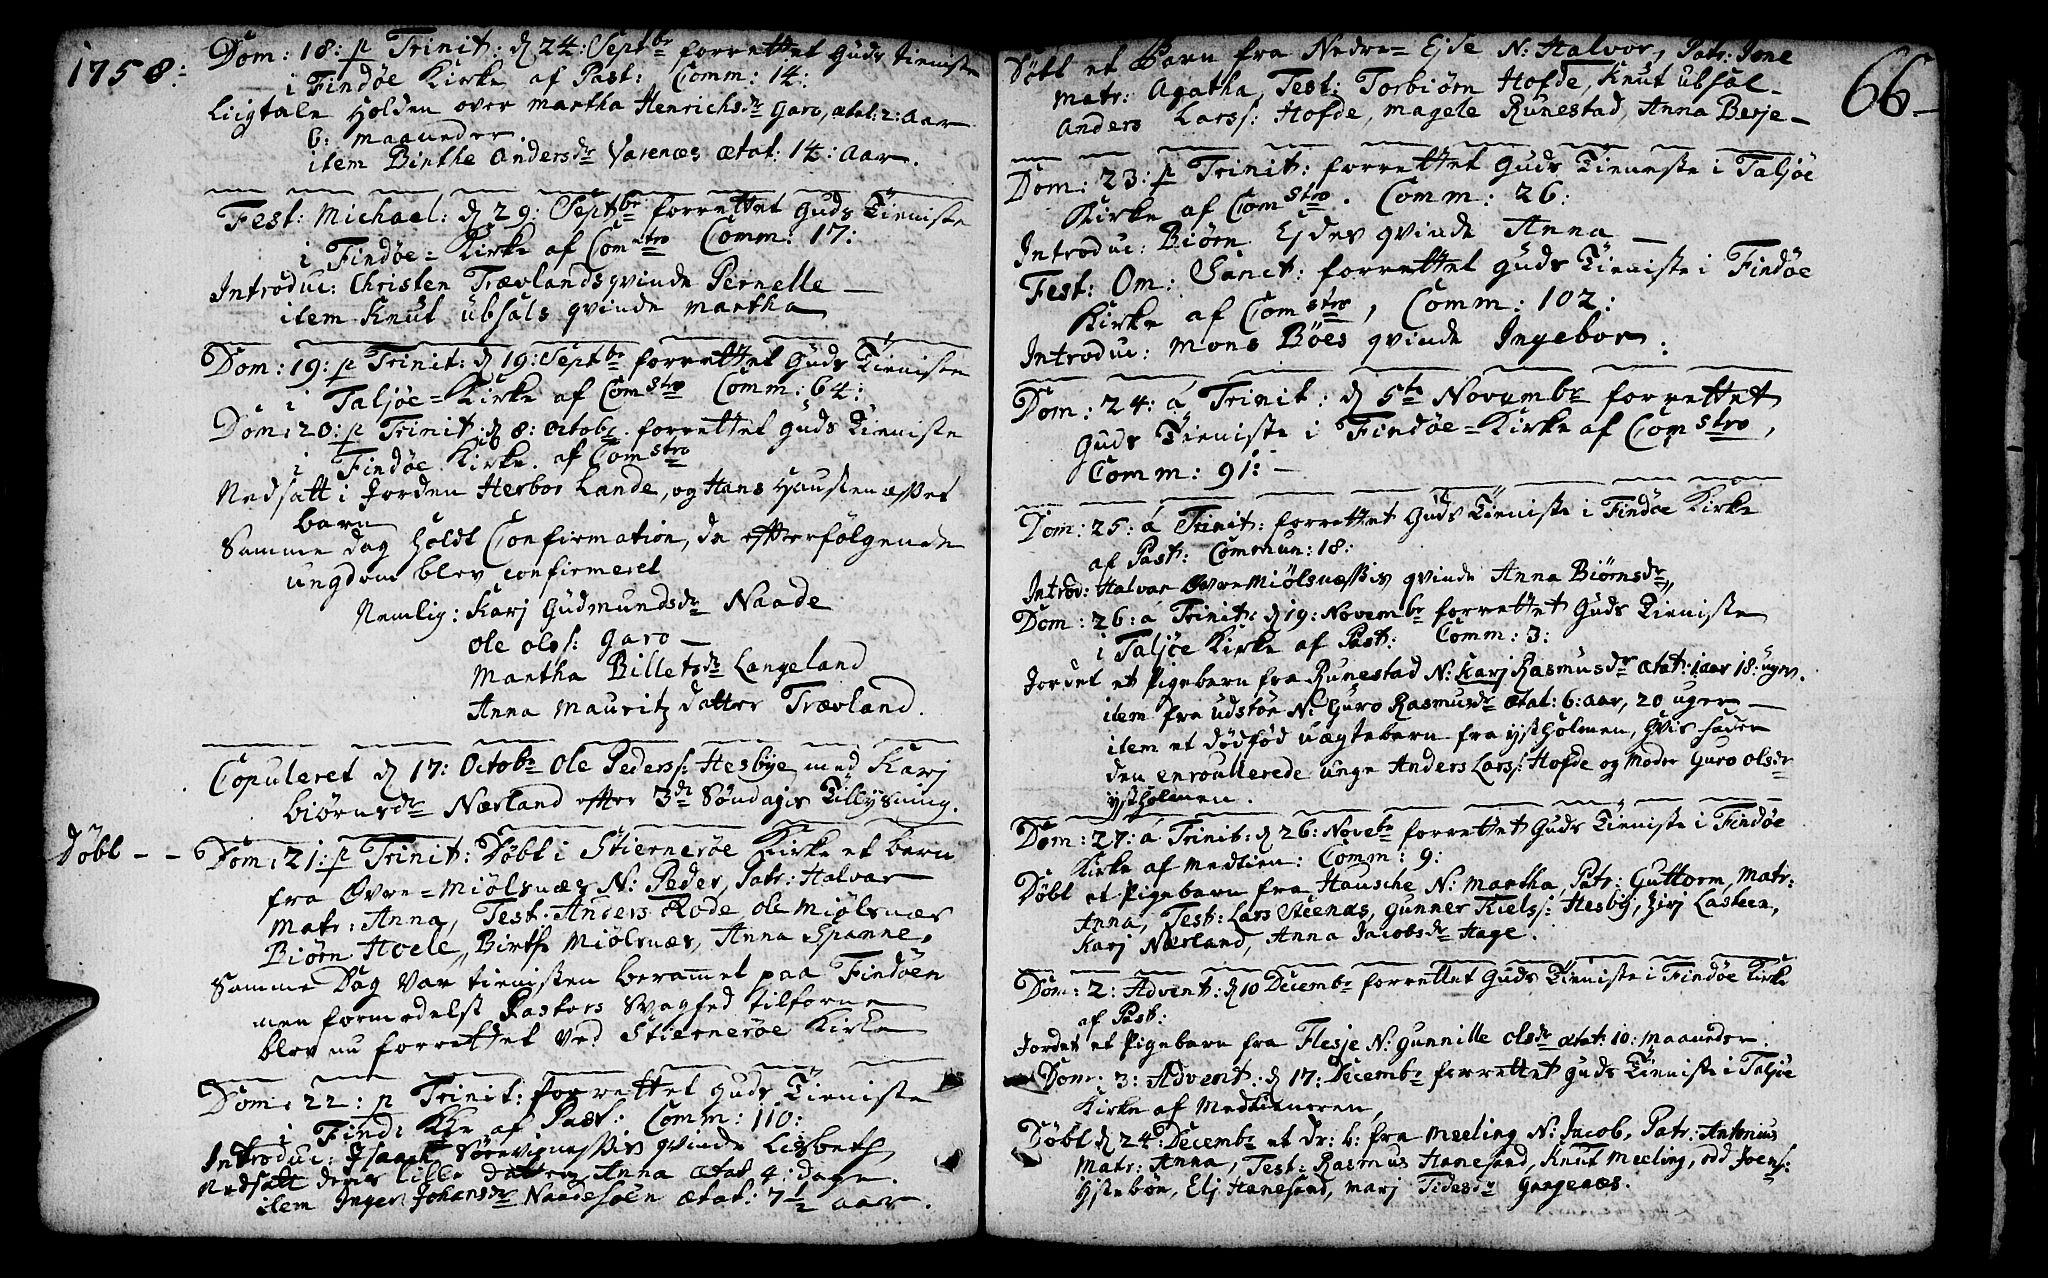 1758:
Dom: 18: p Trinit: d 24: Septbr forrettet Guds Tieniste
i Findøe Kirke af Past: Comm: 14:
Liigtale holden over Martha Henrichsdr Garo, ætat: 2: Aar
6: Maaneder.
item Birthe Andersdr Varenæs ætat: 14: Aar.
Fest: Michael: d 29: Septbr forrettet Guds Tieniste
i Findøe= Kirke af Comstro Comm: 17:
Introduc: Christen Trævlands qvinde Pernelle —
item Knut Ubsals qvinde Martha
Dom: 19: p Trinit: d 19: Septbr forrettet Guds Tieniste
i Taljøe= Kirke af Comstro Comm: 64:
Dom: 20: p Trinit: d 8: Octobr forrettet Guds Tieniste
i Findøe Kirke af Comstro
Nedsatt i Jorden Herbor Lande, og Hans
barn
Samme dag holdt Confirmation, da effterfølgende
ungdom blev confirmeret
Nemlig: Karj Gudmundsdr Naade
Ole Olss: Garo —
Martha Billetsdr Langeland
Anna Mauritz datter Trævland.
Copuleret d 17: Octobr Ole Pederss: Hesbye med Karj
Biørnsdr Nærland efter 3de Søndagis Tillysning.
Døbt - - Dom: 21: p Trinit: Døbt i Stiernerøe Kirke et barn
fra Øvre= Miølsnæs N: Peder, Patr: Halvar
Matr: Anna, Test: Anders Rode, Ole Miølsnæs
Biørn Hoele, Birthe Miølsnæs, Anna Spanne,
Samme Dag var tienisten berammet paa Findøen
men formedelst Pastors Svaghed tilforne
blev nu forrettet ved Stiernerøe Kirke
Dom: 22: p Trinit: forrettet Guds Tieniste
i Find: Kir af Past: Comm: 110:
Introduc: Isaach qvinde Lisbeth,
Nedsatt deris lille datter Anna ætat 4: dage.
item Inger Johansdr Naadesøen ætat: 7½ aar.
66-
Døbt et Barn fra Nedre= Ejde N: Halvor, Patr: Jone
Matr: Agatha, Test: Torbiørn Hofde, Knut Ubsal -
Anders Larss: Hofde, Magele Runestad, Anna Berje -
Dom: 23: p Trinit: forrettet Guds Tieneste i Taljøe
Kirke af Comstro. Comm: 26:
Introduc: Biørn Ejdes qvinde Anna —
Fest: Om: Sanct: forrettet Guds Tieniste i Findøe
Kirke af Comstro, Comm: 102:
Introduc: Mons Bøes qvinde Ingebor.
Dom: 24: á Trinit: d 5te Novembr forrettet
Guds Tieniste i Findøe= Kirke af Comstro,
Comm: 91: -
Dom: 25: á Trinit: forrettet Guds Tieniste i Findøe Kirke
af Past: Commun: 18:
Introd: Halvar Øvre Miølsnæssis qvinde Anna Biørnsdr,
Dom: 26: á Trinit: d 19: Novembr forrettet Guds Tieniste
i Taljøe Kirke af Past: Comm: 3:
Jordet et Pigebarn fra Runestad N: Karj Rasmusdr ætat: 1 aar 18: uger.
item fra Udstøe N: Guro Rasmusdr ætat: 6: aar, 20 uger —
item et dødfød uægtebarn fra ystholmen, hvis fader
den enroullerede unge Anders Larss: Hofde og Moder Guro Olsdr
ystholmen.
Dom: 27: á Trinit: d 26: Novebr forrettet Guds Tieniste i Findøe
Kirke af Medtien: Comm: 9:
Døbt et Pigebarn fra Hausche N: Martha, Patr: Guttorm, Matr:
Anna, Test: Lars Steenæs, Gunner Kielss: Hesby, Zirj Lasteen,
Karj Nærland, Anna Jacobsdr Hage.
Dom: 2: Advent: d 10 Decembr forrettet Guds Tieniste i Findøe Kirke
af Past:
Jordet et Pigebarn fra Flesje N: Gunnille Olsdr ætat: 10: Maaneder.
Dom: 3: Advent: d 17: Decembr forrettet Guds Tieniste i Taljøe
Kirke af Medtieneren,
Døbt d 24: Decembr et dr: b: fra Meeling N: Jacob, Patr: Antonius
Matr: Anna, Test: Rasmus Hanesand, Knut Meeling, Odd Joens:
Elj Hanesand, Marj Tidesdr